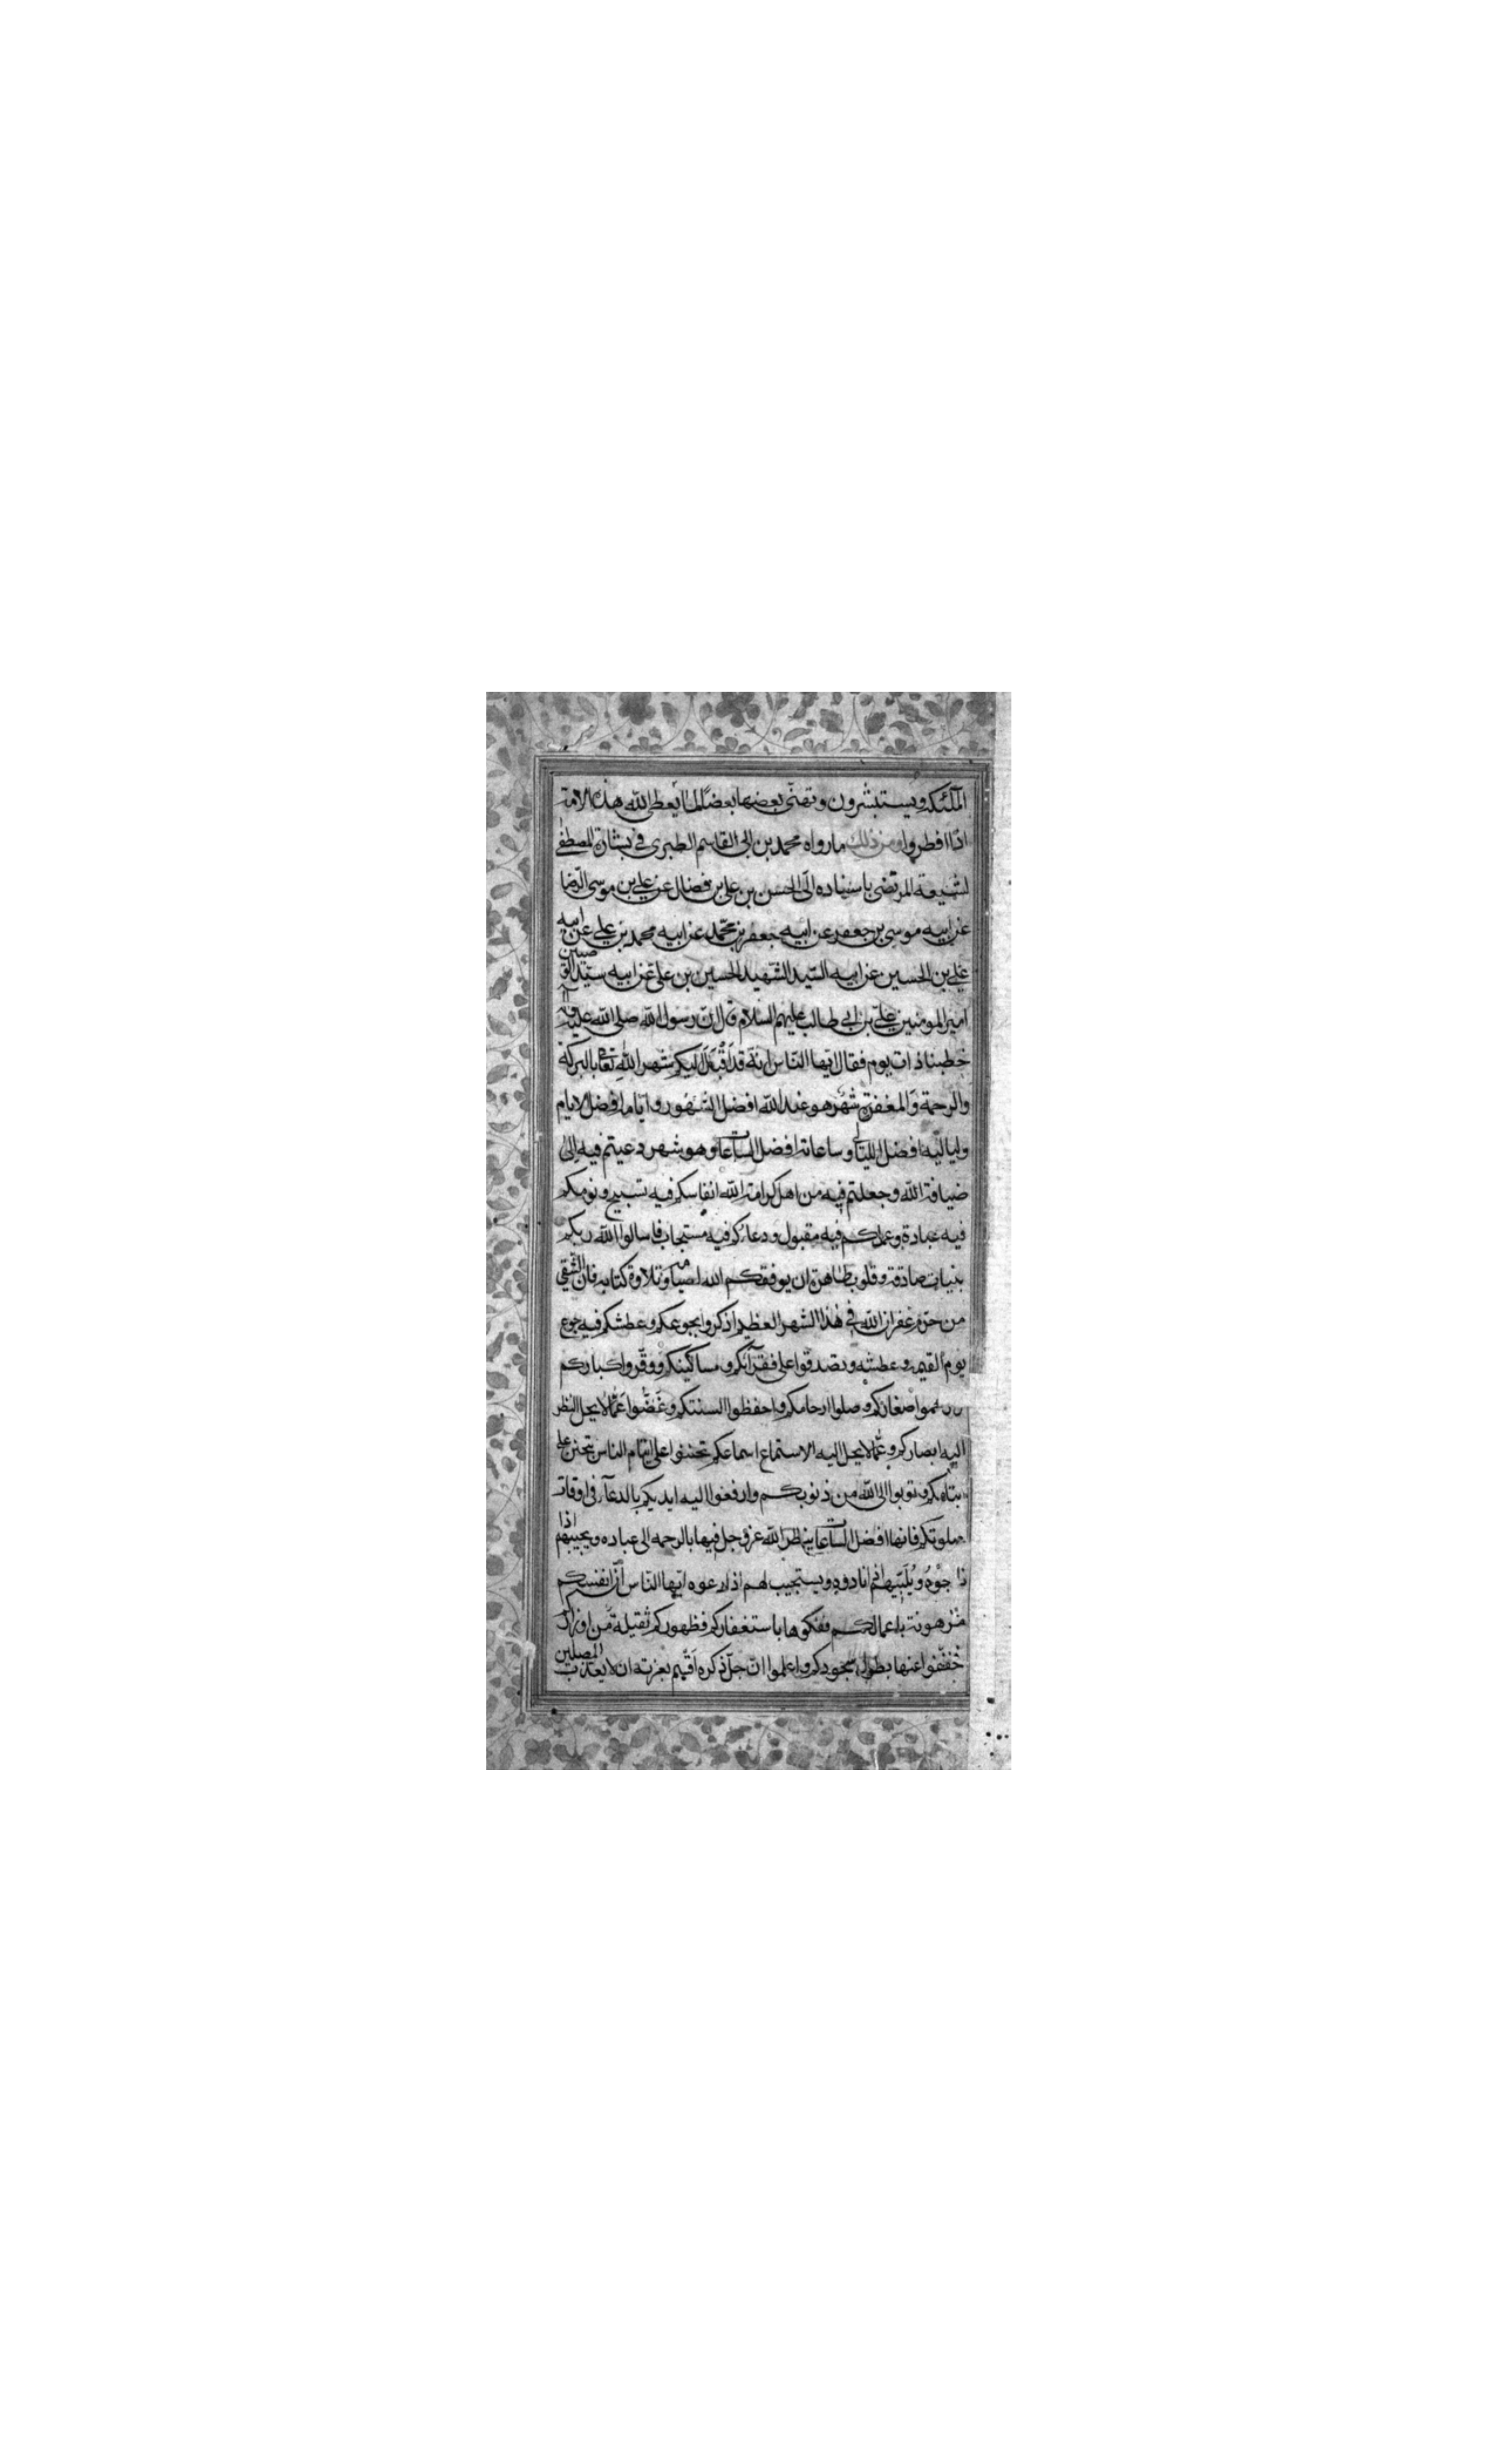 الملآئكه ويستبشرون وتهنّى بعضها بعضًا لما يعطى الله هذه الامة
اذا افطروا ومن ذلك ما رواه محمد بن ابى القاسم الطبرى فى بشارة المصطفى
لشيعة المرتضى باسناده الى الحسن بن على بن فضال عن على بن موسى الرّضا
عن ابيه موسى بن جعفر عن ابيه جعفر بن محمّد عن ابيه محمد بن على عن ابيه
على بن الحسين عن ابيه السّيد الشّهيد الحسين بن على عن ابيه سيّد الوصيين
امير المومنين علىّ بن ابى طالب عليهم السلام قال انّ رسول الله صلى الله عليه وآله
خطبنا ذات يوم فقال ايّها النّاس انّه قد اَقْبَلَ اليكم شهر الله تعالى بالبركة
والرحمة والمغفرة شهر هو عند الله افضل الشّهور وايّامه افضل الايام
ولياليه افضل الليالى وساعاته افضل الساعات وهو شهر دعيتم فيه الى
ضيافة الله وجعلتم فيه من اهل كرامة الله انفاسكم فيه تسبيح ونومكم
فيه عبادة وعملكم فيه مقبول ودعاؤكم فيه مستجاب فاسالوا الله ربكم
بنيات صادقة وقلوب طاهرة ان يوفقكم الله لصيامه وتلاوة كتابه فان الشّقى
من حرم غفران الله فى هذا الشهر العظيم اذكروا بجوعكم وعطشكم فيه جوع
يوم القيمه وعطشه وتصدقوا على فقرآئكم ومساكينكم ووقّروا كباركم
صغاركم وصلوا ارحامكم واحفظوا السنتكم وغَضّوا عَمّا لا يحل النظر
اليه ابصاركم وعمّا لا يحل اليه الاستماع اسماعكم تحننوا على ايتام الناس يتحنن على
يتامكم وتوبوا الى الله من ذنوبكم وارفعوا اليه ايديكم بالدعآء فى اوقات
صلوتكم فانها افضل الساعات ينظر الله عزّ وجل فيها بالرحمه الى عباده ويجيبهم اذا
ناجوه ويُلَبّيهم اذا نادوه ويستجيب لهم اذا دعوه ايّها الناس انّ انفسكم
مرهونة باعمالكم ففكوها باستغفاركم فظهوركم ثقيلة من اوزاركم
فخففوا عنها بطول سجودكم واعلموا انّ جلّ ذكره اَقسم بعزته ان لا يعذب المصلين